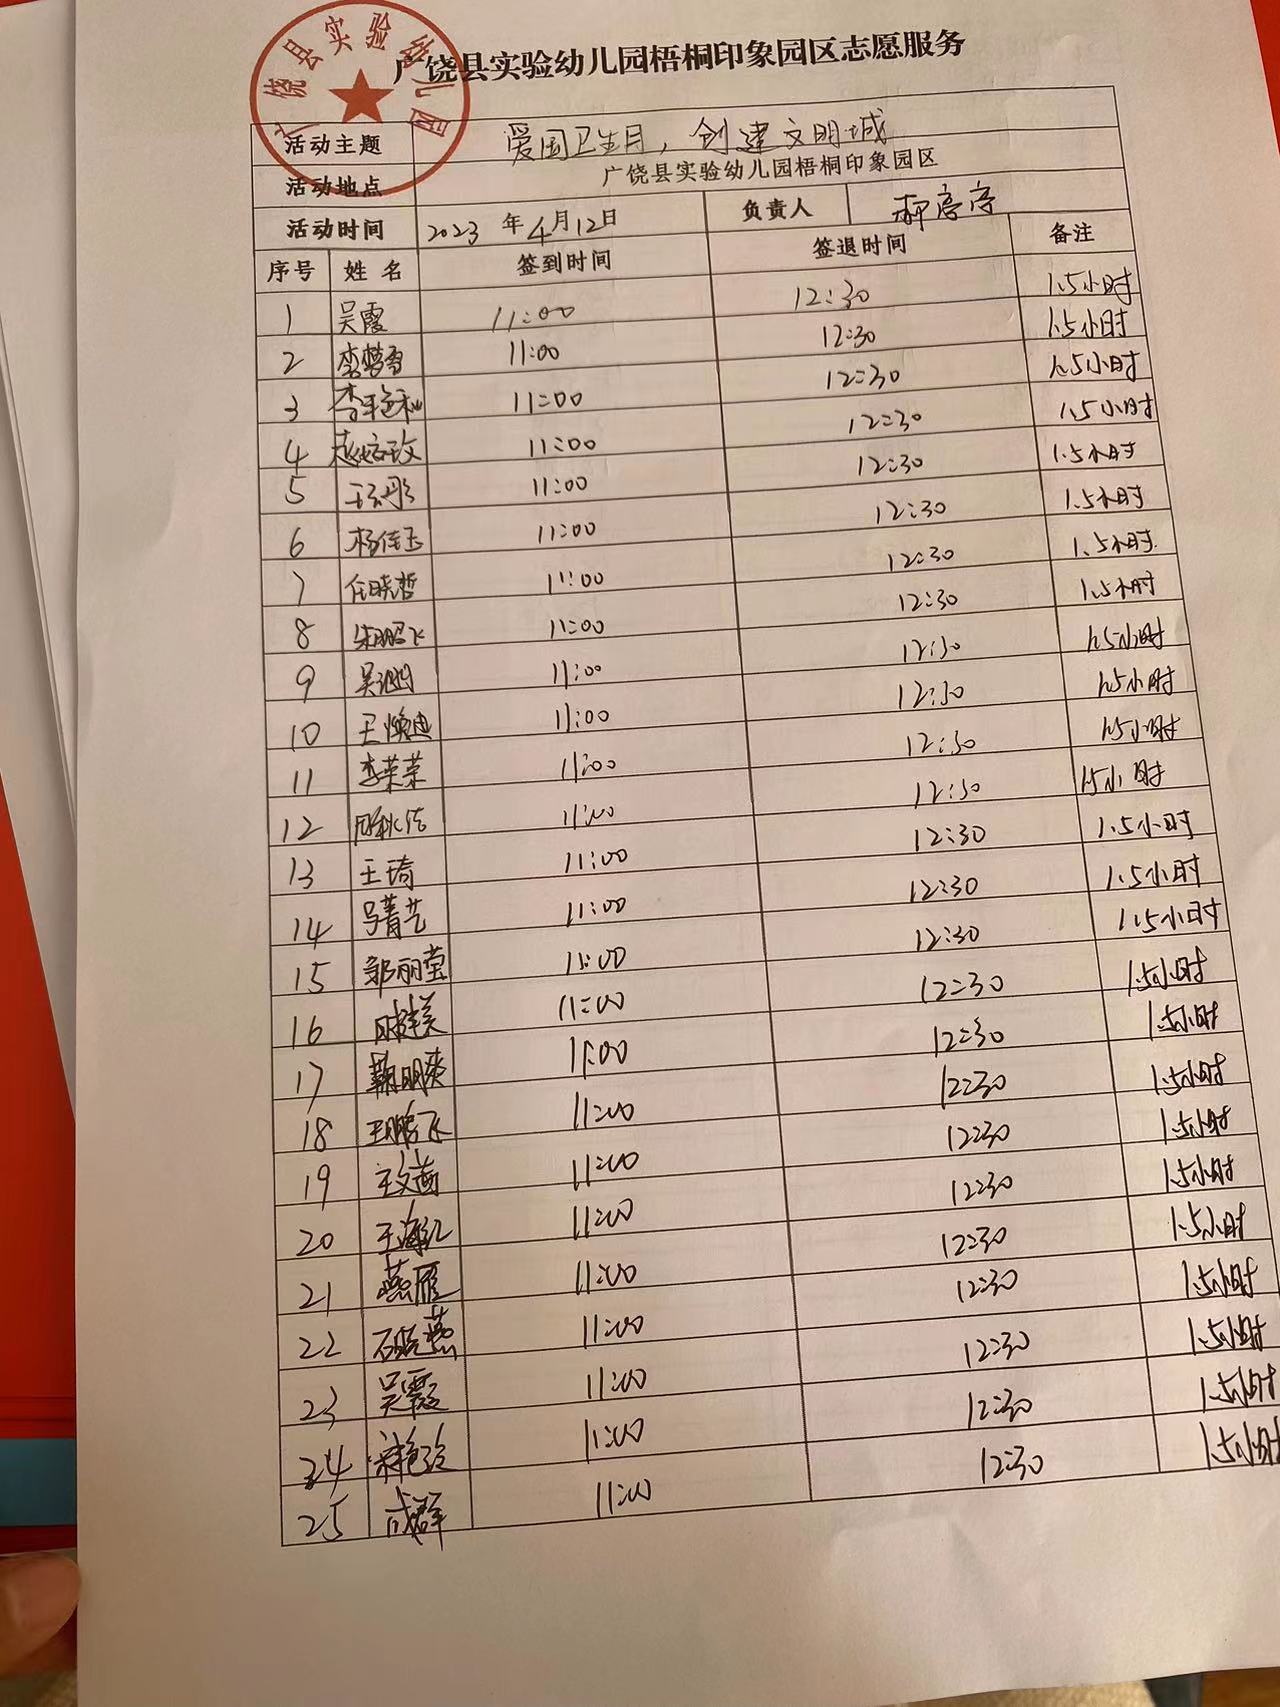 广饶县实验幼儿园
广饶县实验幼儿园梧桐印象园区志愿服务
活动主题 爱国卫生月，创建文明城
活动地点 广饶县实验幼儿园梧桐印象园区
活动时间 2023年4月12日 负责人
序号 姓名 签到时间 签退时间 备注
1 吴霞 11:00 12:30 1.5小时
2 李梦雪 11:00 12:30 1.5小时
3 11:00 12:30 1.5小时
4 11:00 12:30 1.5小时
5 11:00 12:30 1.5小时
6 杨佳玉 11:00 12:30 1.5小时
7 任晓哲 11:00 12:30 1.5小时
8 朱鹏飞 11:00 12:30 1.5小时
9 11:00 12:30 1.5小时
10 王焕迪 11:00 12:30 1.5小时
11 李荣荣 11:00 12:30 1.5小时
12 11:00 12:30 1.5小时
13 王琦 11:00 12:30 1.5小时
14 马菁艺 11:00 12:30 1.5小时
15 郭丽莹 11:00 12:30 1.5小时
16 11:00 12:30 1.5小时
17 鞠明爽 11:00 12:30 1.5小时
18 王鹏飞 11:00 12:30 1.5小时
19 王文茜 11:00 12:30 1.5小时
20 王海红 11:00 12:30 1.5小时
21 燕雁 11:00 12:30 1.5小时
22 石晓燕 11:00 12:30 1.5小时
23 吴霞 11:00 12:30 1.5小时
24 11:00 12:30 1.5小时
25 成群 11:00 12:30 1.5小时